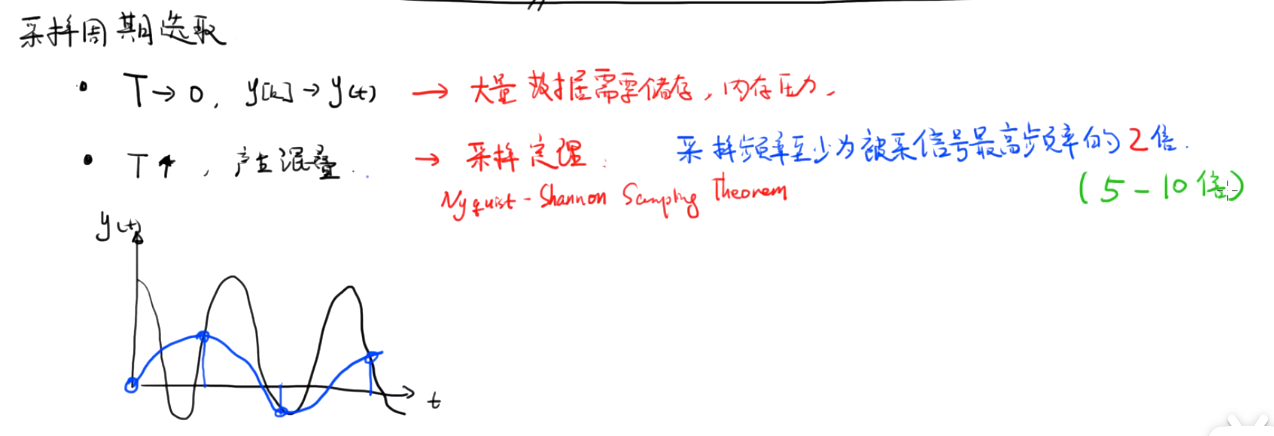 采样周期选取
• T→0, y[k]→y(t) → 大量数据需要储存，内存压力.
• T↑, 产生混叠.. → 采样定理. 采样频率至少为被采信号最高频率的2倍.
Nyquist-Shannon Sampling Theorem (5-10倍)
y(t)
t